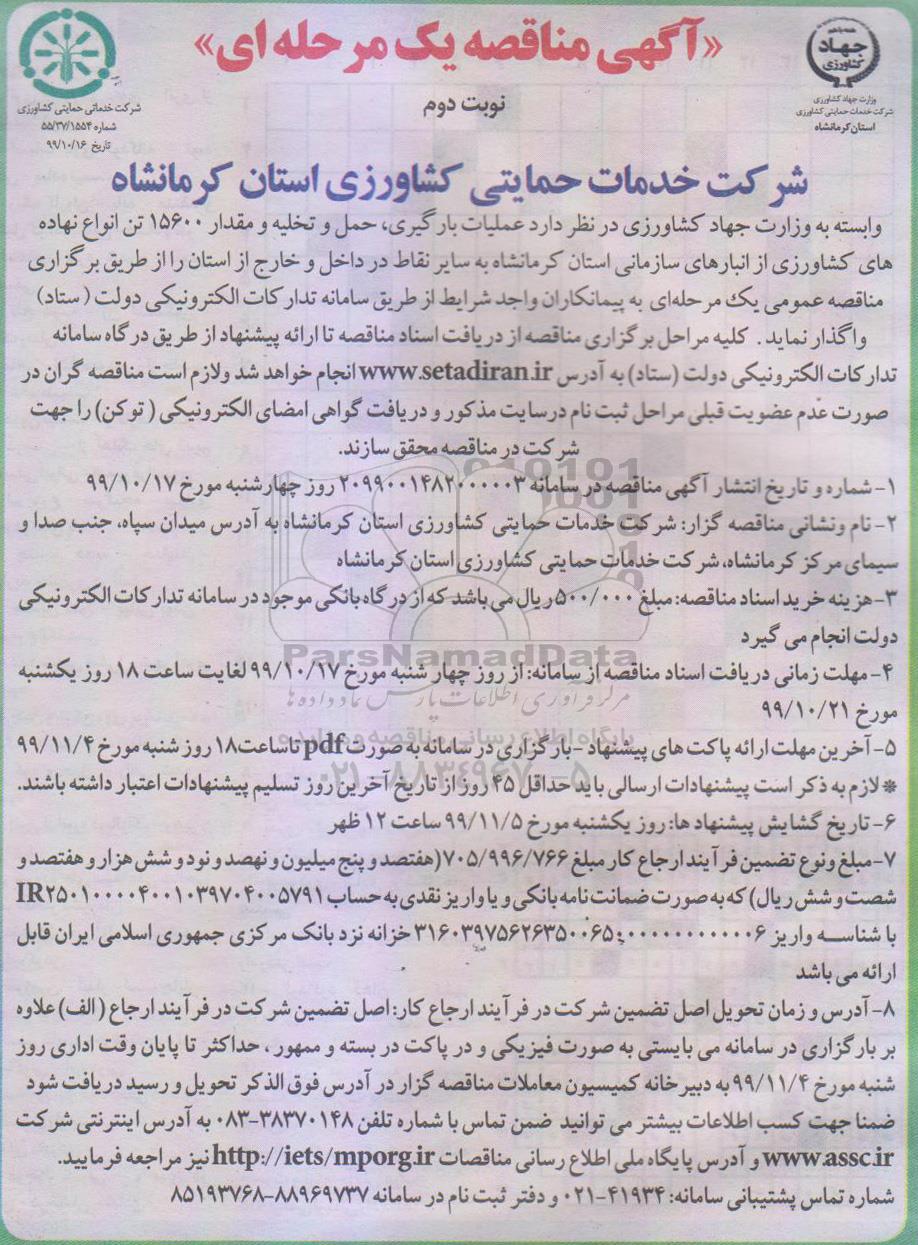 «آگهی مناقصه یک مرحله ای»
نوبت دوم
جهاد کشاورزی
وزارت جهاد کشاورزی
شرکت خدمات حمایتی کشاورزی
استان کرمانشاه
شرکت خدماتی حمایتی کشاورزی
شماره ۵۵/۳۷/۱۵۵۴
تاریخ ۹۹/۱۰/۱۶
شرکت خدمات حمایتی کشاورزی استان کرمانشاه
وابسته به وزارت جهاد کشاورزی در نظر دارد عملیات بارگیری، حمل و تخلیه و مقدار ۱۵۶۰۰ تن انواع نهاده
های کشاورزی از انبارهای سازمانی استان کرمانشاه به سایر نقاط در داخل و خارج از استان را از طریق برگزاری
مناقصه عمومی یک مرحله‌ای به پیمانکاران واجد شرایط از طریق سامانه تدارکات الکترونیکی دولت (ستاد)
واگذار نماید . کلیه مراحل برگزاری مناقصه از دریافت اسناد مناقصه تا ارائه پیشنهاد از طریق درگاه سامانه
تدارکات الکترونیکی دولت (ستاد) به آدرس www.setadiran.ir انجام خواهد شد ولازم است مناقصه گران در
صورت عدم عضویت قبلی مراحل ثبت نام درسایت مذکور و دریافت گواهی امضای الکترونیکی (توکن) را جهت
شرکت در مناقصه محقق سازند.
۱- شماره و تاریخ انتشار آگهی مناقصه در سامانه ۲۰۹۹۰۰۱۴۸۲۰۰۰۰۰۳ روز چهارشنبه مورخ ۹۹/۱۰/۱۷
۲- نام ونشانی مناقصه گزار: شرکت خدمات حمایتی کشاورزی استان کرمانشاه به آدرس میدان سپاه، جنب صدا و
سیمای مرکز کرمانشاه، شرکت خدمات حمایتی کشاورزی استان کرمانشاه
۳- هزینه خرید اسناد مناقصه: مبلغ ۵۰۰/۰۰۰ ریال می باشد که از درگاه بانکی موجود در سامانه تدارکات الکترونیکی
دولت انجام می گیرد
۴- مهلت زمانی دریافت اسناد مناقصه از سامانه: از روز چهار شنبه مورخ ۹۹/۱۰/۱۷ لغایت ساعت ۱۸ روز یکشنبه
مورخ ۹۹/۱۰/۲۱
۵- آخرین مهلت ارائه پاکت های پیشنهاد - بارگزاری در سامانه به صورت pdf تا ساعت۱۸ روز شنبه مورخ ۹۹/۱۱/۴
* لازم به ذکر است پیشنهادات ارسالی باید حداقل ۴۵ روز از تاریخ آخرین روز تسلیم پیشنهادات اعتبار داشته باشند.
۶- تاریخ گشایش پیشنهاد ها: روز یکشنبه مورخ ۹۹/۱۱/۵ ساعت ۱۲ ظهر
۷- مبلغ ونوع تضمین فرآیند ارجاع کار مبلغ ۷۰۵/۹۹۶/۷۶۶ (هفتصد و پنج میلیون و نهصد و نود و شش هزار و هفتصد و
شصت و شش ریال) که به صورت ضمانت نامه بانکی و یا واریز نقدی به حساب IR۲۵۰۱۰۰۰۰۴۰۰۱۰۳۹۷۰۴۰۰۵۷۹۱
با شناسه واریز خزانه نزد بانک مرکزی جمهوری اسلامی ایران قابل
ارائه می باشد
۸- آدرس و زمان تحویل اصل تضمین شرکت در فرآیند ارجاع کار: اصل تضمین شرکت در فرآیند ارجاع (الف) علاوه
بر بارگزاری در سامانه می بایستی به صورت فیزیکی و در پاکت در بسته و ممهور ، حداکثر تا پایان وقت اداری روز
شنبه مورخ ۹۹/۱۱/۴ به دبیرخانه کمیسیون معاملات مناقصه گزار در آدرس فوق الذکر تحویل و رسید دریافت شود
ضمنا جهت کسب اطلاعات بیشتر می توانید ضمن تماس با شماره تلفن ۳۸۳۷۰۱۴۸-۰۸۳ به آدرس اینترنتی شرکت
www.assc.ir و آدرس پایگاه ملی اطلاع رسانی مناقصات http://iets/mporg.ir نیز مراجعه فرمایید.
شماره تماس پشتیبانی سامانه: ۴۱۹۳۴-۰۲۱ و دفتر ثبت نام در سامانه ۸۸۹۶۹۷۳۷-۸۵۱۹۳۷۶۸
ParsNamadData
مرکز فرآوری اطلاعات پارس نماد داده ها
پایگاه اطلاع رسانی مناقصه و مزایده
۰۲۱-۸۸۳۴۹۶۷۰-۵